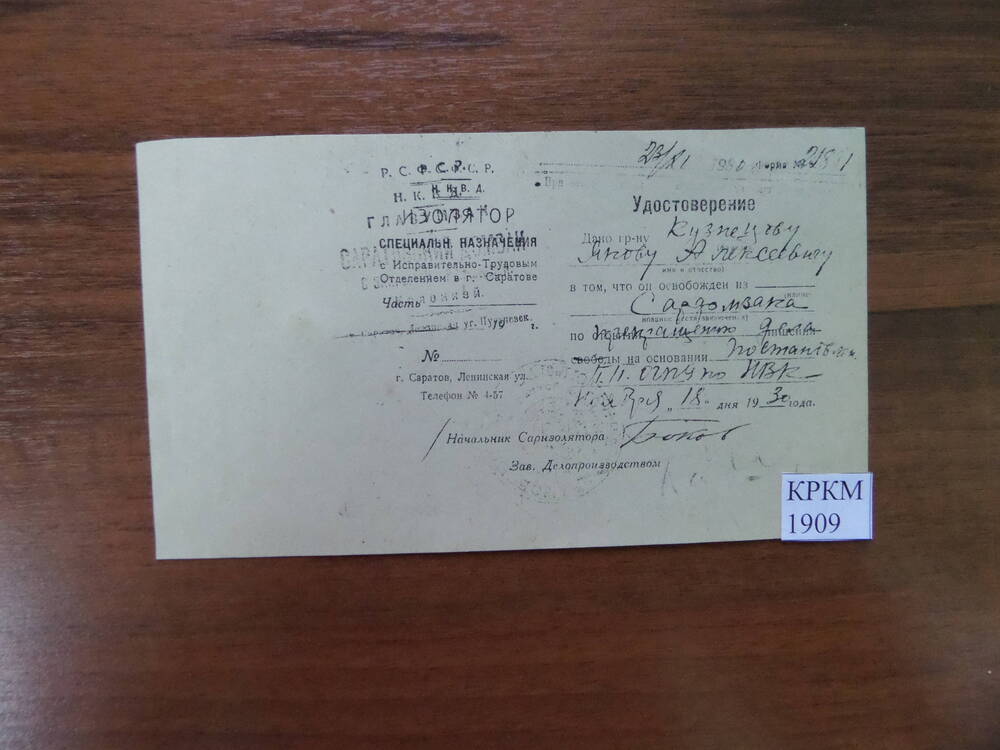 Р. С. Ф. С. Р.
Н. К. В. Д.
ИЗОЛЯТОР
СПЕЦИАЛЬН. НАЗНАЧЕНИЯ
с Исправительно-Трудовым
Отделением в г. Саратове
Часть
г.
№
г. Саратов, Ленинская ул.
Телефон № 4-57
23/XI 1930 Форма №
Удостоверение
Дано гр-ну Кузнецову
Якову Алексеевичу
имя и отчество)
в том, что он освобожден из
Сардомзака
по прекращению дела лишения
свободы на основании Постановлен.
П.П. ОГПУ по НВК
Ноября „18" дня 1930 года.
Начальник Саризолятора Боков
Зав. Делопроизводством
КРКМ
1909